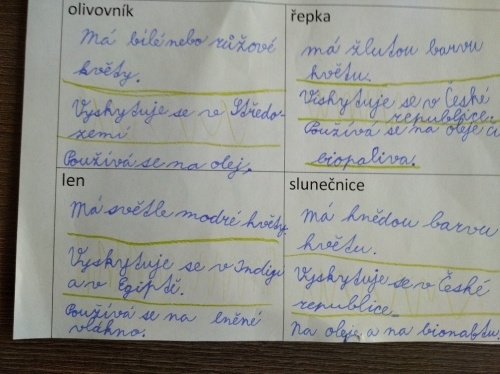 olivovník
Má bílé nebo růžové
květy.
Vyskytuje se v Středo-
zemí
Používá se na olej.
řepka
má žlutou barvu
květu.
Viskytuje se v České
republice.
Používá se na oleje a
biopaliva.
len
Má světle modré květy.
Vyskytuje se v Indii
a v Egiptě.
Používá se na lněné
vlákno.
slunečnice
Má hnědou barvu
květu.
Vyskytuje se v České
republice.
Na oleje a na bionaftu.